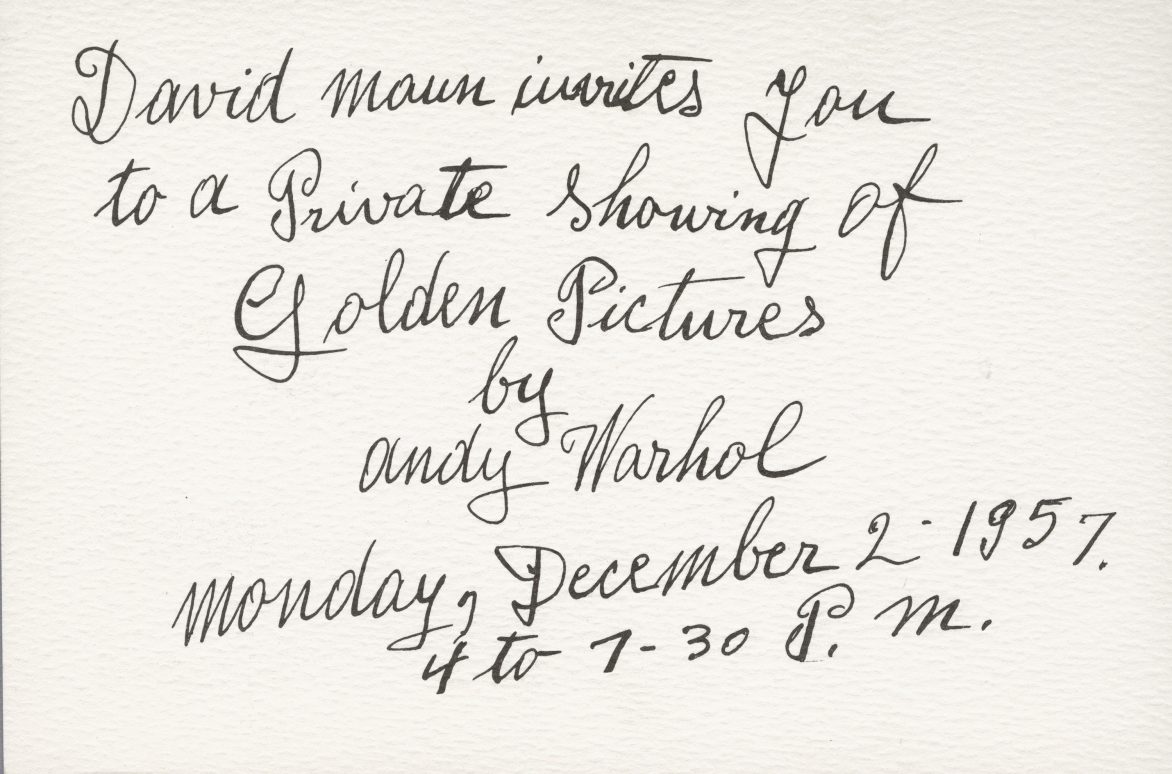 David Mann invites you
to a Private Showing of
Golden Pictures
by
Andy Warhol
Monday, December 2 - 1957.
4 to 7-30 P. M.